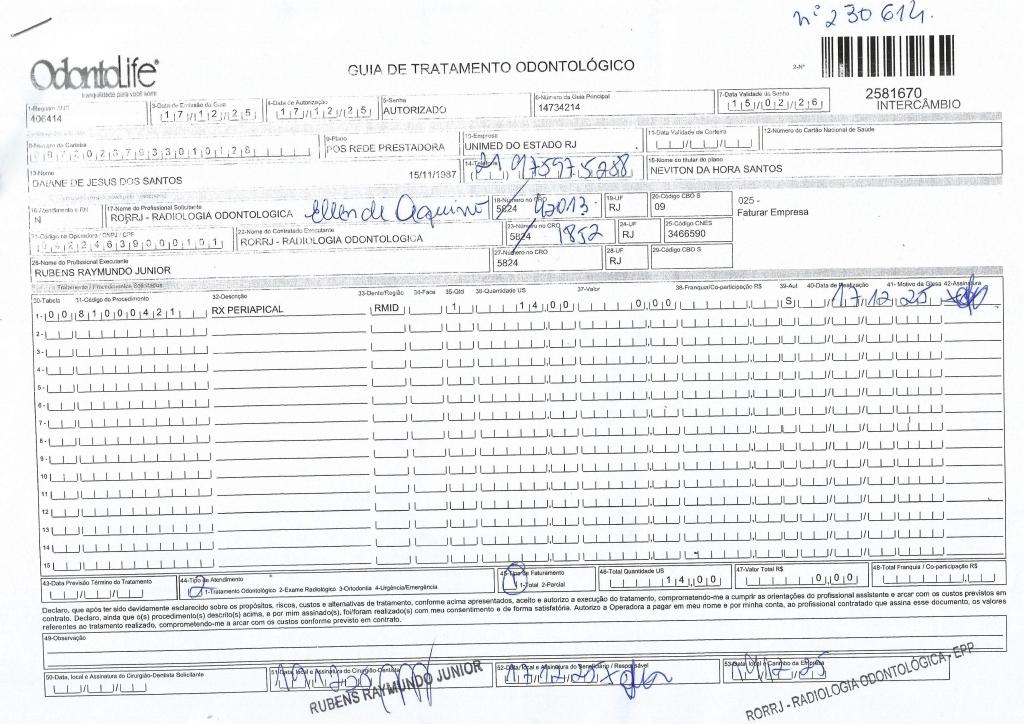 nº 230614.
OdontoLife®
tranquilidade para você sorrir
GUIA DE TRATAMENTO ODONTOLÓGICO
2-Nº
2581670
INTERCÂMBIO
1-Registro ANS
406414
3-Data de Emissão da Guia
17/12/25
4-Data de Autorização
17/12/25
5-Senha
AUTORIZADO
6-Número da Guia Principal
14734214
7-Data Validade da Senha
15/02/26
8-Número da Carteira
9-Plano
POS REDE PRESTADORA
10-Empresa
UNIMED DO ESTADO RJ
11-Data Validade da Carteira
12-Número do Cartão Nacional de Saúde
13-Nome
DAIANE DE JESUS DOS SANTOS
15/11/1987
14-Telefone
21 975975288
15-Nome do titular do plano
NEVITON DA HORA SANTOS
16-Atendimento a RN
N
17-Nome do Profissional Solicitante
RORRJ - RADIOLOGIA ODONTOLOGICA Ellen de Aquino
18-Número no CRO
5824 42013
19-UF
RJ
20-Código CBO S
09
025 -
Faturar Empresa
21-Código na Operadora / CNPJ / CPF
22-Nome do Contratado Executante
RORRJ - RADIOLOGIA ODONTOLOGICA
23-Número no CRO
5824 1852
24-UF
RJ
25-Código CNES
3466590
26-Nome do Profissional Executante
RUBENS RAYMUNDO JUNIOR
27-Número no CRO
5824
28-UF
RJ
29-Código CBO S
Tratamento / Procedimentos Solicitados
30-Tabela 31-Código do Procedimento 32-Descrição 33-Dente/Região 34-Face 35-Qtd 36-Quantidade US 37-Valor 38-Franquia/Co-participação R$ 39-Aut 40-Data de Realização 41- Motivo da Glosa 42-Assinatura
1- 00 81000421 RX PERIAPICAL RMID 1 14,00 0,00 S 17/12/25
2-
3-
4-
5-
6-
7-
8-
9-
10
11
12
13
14
15
43-Data Previsão Término do Tratamento
44-Tipo de Atendimento
1-Tratamento Odontológico 2-Exame Radiológico 3-Ortodontia 4-Urgência/Emergência
45-Tipo de Faturamento
1-Total 2-Parcial
46-Total Quantidade US
14,00
47-Valor Total R$
0,00
48-Total Franquia / Co-participação R$
Declaro, que após ter sido devidamente esclarecido sobre os propósitos, riscos, custos e alternativas de tratamento, conforme acima apresentados, aceito e autorizo a execução do tratamento, comprometendo-me a cumprir as orientações do profissional assistente e arcar com os custos previstos em
contrato. Declaro, ainda que o(s) procedimento(s) descrito(s) acima, e por mim assinado(s), foi/foram realizado(s) com meu consentimento e de forma satisfatória. Autorizo a Operadora a pagar em meu nome e por minha conta, ao profissional contratado que assina esse documento, os valores
referentes ao tratamento realizado, comprometendo-me a arcar com os custos conforme previsto em contrato.
49-Observação
50-Data, local e Assinatura do Cirurgião-Dentista Solicitante
51-Data, local e Assinatura do Cirurgião-Dentista
RUBENS RAYMUNDO JUNIOR
52-Data, local e Assinatura do Beneficiário / Responsável
17/12/25
53-Data, local e Carimbo da Empresa
RORRJ - RADIOLOGIA ODONTOLÓGICA - EPP